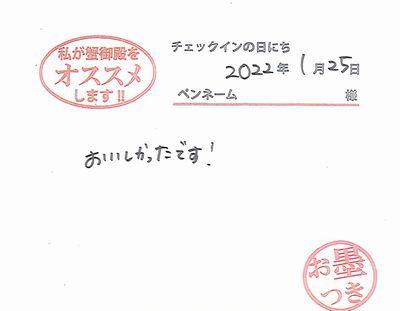 私が蟹御殿を
オススメ
します!!
チェックインの日にち
2022年 1月25日
ペンネーム 様
おいしかったです!
お墨
つき